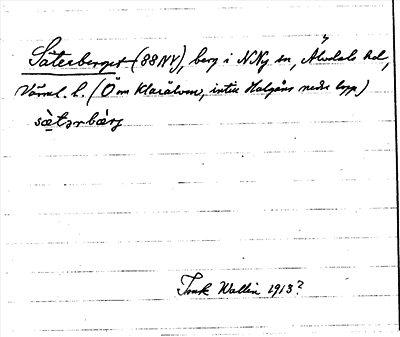 Säterberget (88NV), berg i N Ny sn, Älvdals hd,
Värml. l. (Ö om Klarälven, intill Halgåns nedre lopp)
sä̀tərbæ̀rj
Tork Wallin 1913?